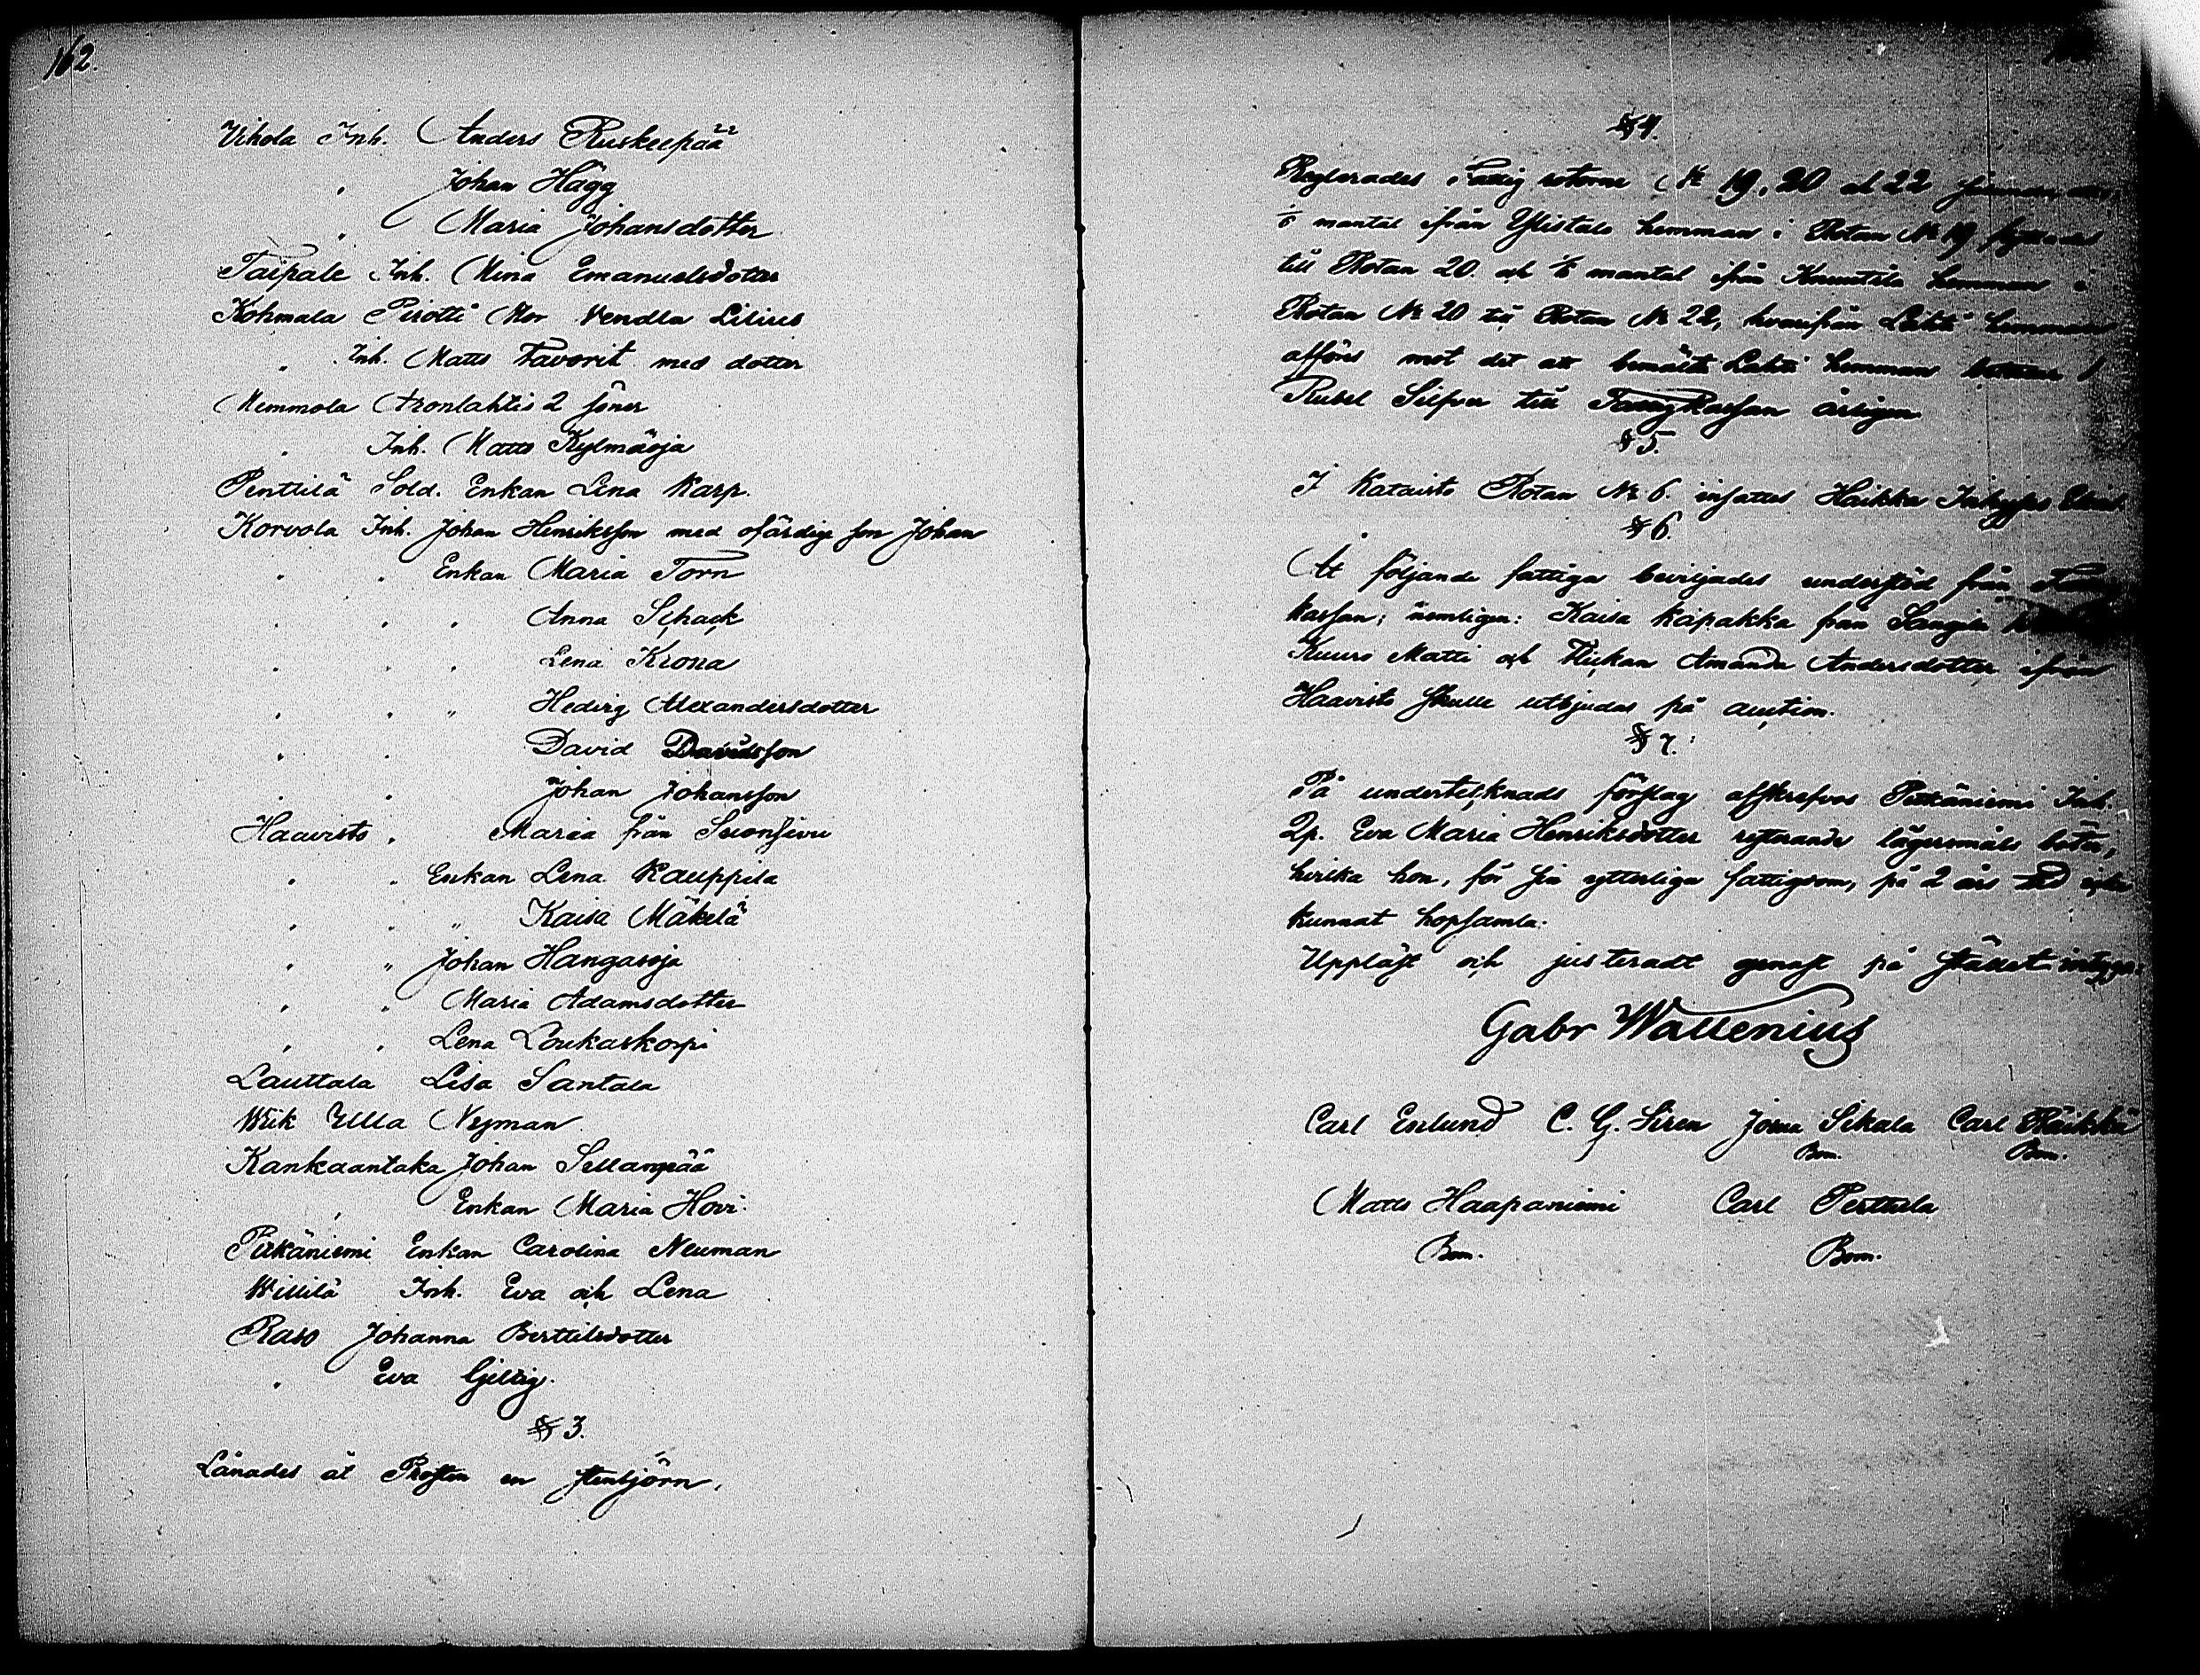 162.
Vihola Inh. Anders Ruskeepää
" Johan Hägg
" Maria Johansdotter
Taipale Inh. Mina Emanuelsdotter
Kohmala Pirotti Mor Vendla Lilius
" Inh. Matts Favorit med dotter
Memmola Aronlahtis 2 söner
" Inh. Matts Kylmäoja
Penttilä Sold. Enkan Lena Karp.
Korvola Inh. Johan Henriksson med ofärdige son Johan
" " Enkan Maria Torn
" " " Anna Schack
" " " Lena Krona
" " " Hedvig Alexandersdotter
" " David Davidsson
" " Johan Johansson
Haavisto " Maria från
" " Enkan Lena Kauppila
" " " Kaisa Mäkelä
" " Johan Hangasoja
" " Maria Adamsdotter
" " Lena Loukaskorpi
Lauttala Lisa Santala
Wiik Ulla Nyman
Kankaantaka Johan Sillanpää
" Enkan Maria Hovi.
Pitkäniemi Enkan Carolina Neuman
Willilä Inh. Eva och Lena
Raso Johanna Berttilsdotter
" Eva Gjeltig.
§ 3.
Lånades åt Prosten en stenbjörn.
§ 4.
Reglerades Fattig rotorne No 19, 20 och 22
mantal ifrån Ylistalo hemman i Rotan No 19 flyttades
till Rotan 20. och 1/6 mantal ifrån hemman i
Rotan No 20 till Rotan No 22, hvarifrån Lahti hemman
afföres mot det att bemälte Lahti hemman 1
Rubel Silfver till Fattigkassan årligen
§ 5.
I Kataisto Rotan No 6. insattes Haikka Inhyses
§ 6.
At följande fattiga beviljades understöd från
kassan; nemligen: Kaisa Kapakka från
Kuuro Matti och Flickan Amanda Andersdotter ifrån
Haavisto skulle utbjudas på auction.
§ 7.
På undertecknads förslag afskrefvos Pitkäniemi Inh.
Qp. Eva Maria Henriksdotter resterande lägersmåls böter,
hvilka hon, för sin ytterliga fattigdom, på 2 års tid icke
kunnat hopsamla.
Uppläst och justeradt genast på stället intygar:
Gabr Wallenius
Carl Enlund C. G. Siren Josua Sikala Carl
Bm. Bm.
Matts Haapaniemi Carl Perttula
Bm. Bom.